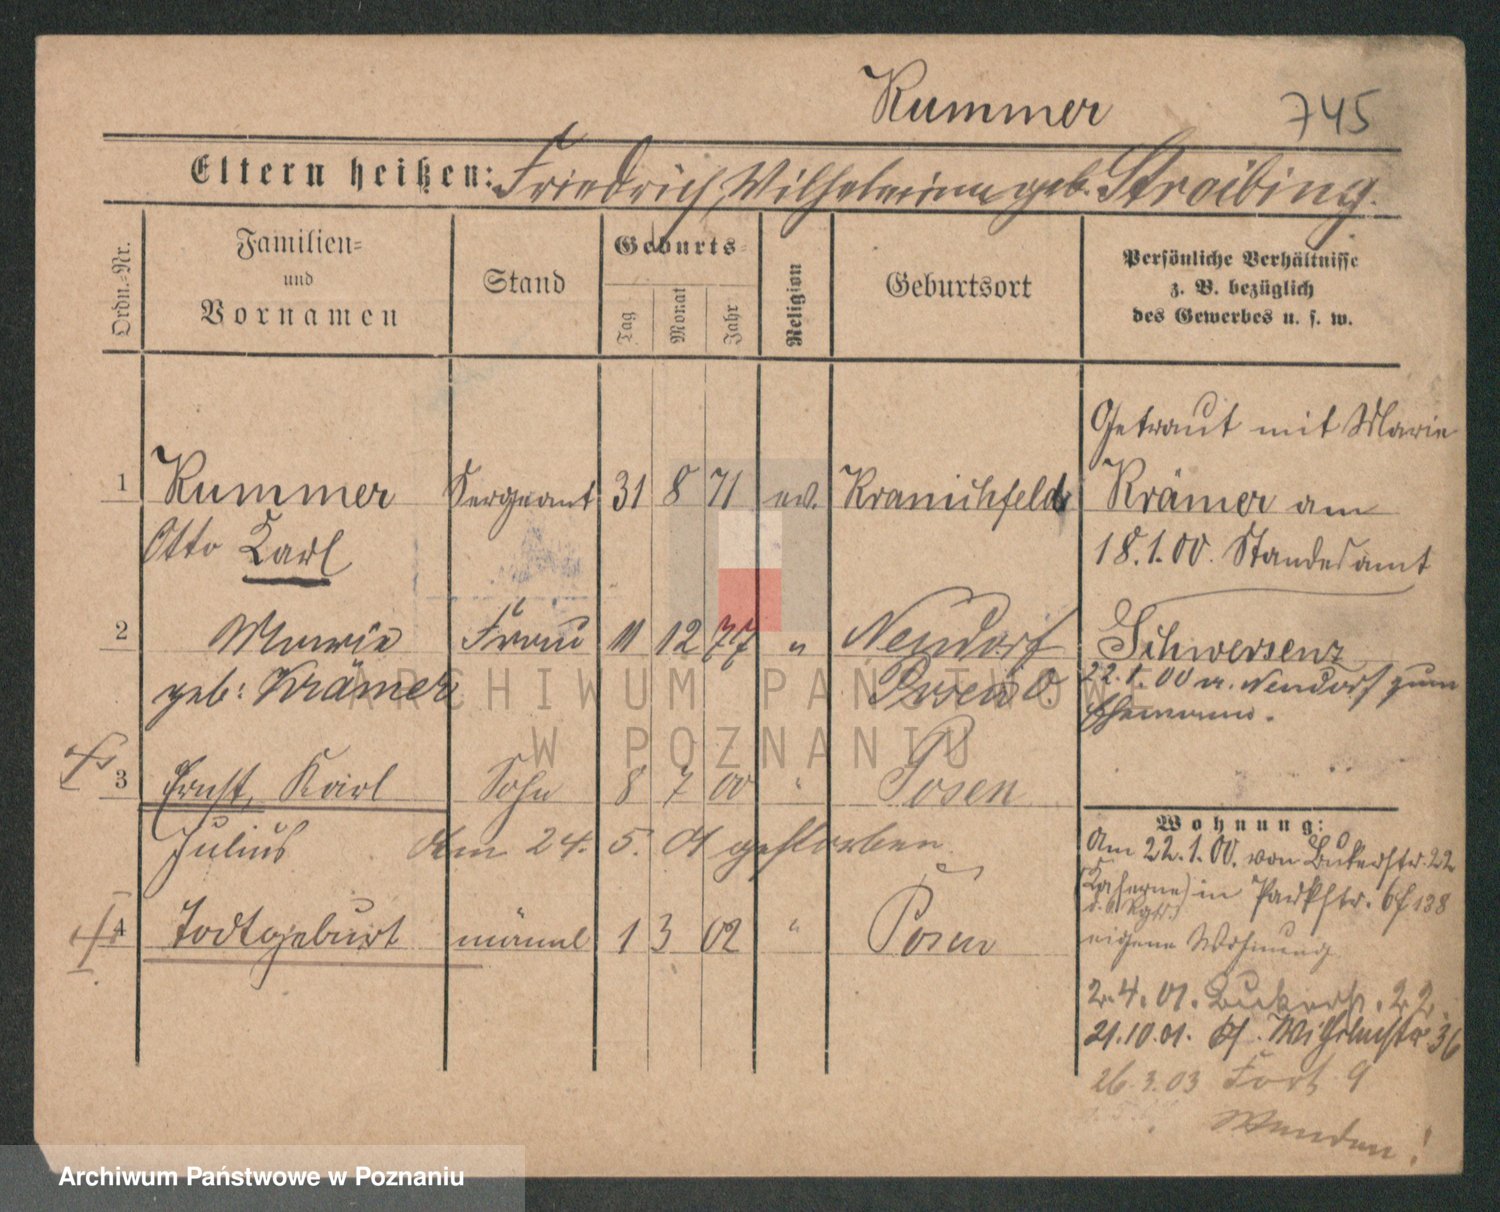 Kummer 745
Eltern heißen: Friedrich, Wilhelmine geb. Stroibing.
Ordn.-Nr.
Familien-
und
Vornamen
Stand
Geburts-
Tag
Monat
Jahr
Religion
Geburtsort
Persönliche Verhältnisse
z. B. bezüglich
des Gewerbes u. s. w.
Getraut mit Marie
1 Kummer Sergeant 31 8 71 ev. Kranichfeld Krämer am
Otto Karl 18.1.00. Standesamt
2 Marie Frau 11 12 77 " Neudorf Schwersenz
geb: Krämer Posen O. 22.1.00 v. Neudorf zum
Ehemann.
3 Ernst Karl Sohn 8 7 00 " Posen
Julius Am 24. 5. 01 gestorben
4 Todtgeburt männl 1 3 02 " Posen
Wohnung:
Am 22.1.00. von Bukerstr. 22
(Kaserne) in Parkstr. 6
eigene Wohnung
2.4.01. Bukerstr. 22.
21.10.01. Wilhelmstr. 36
26.3.03 Fort 9
Wenden!
ARCHIWUM PAŃSTWOWE
W POZNANIU
Archiwum Państwowe w Poznaniu